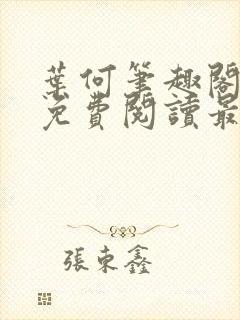 葉何筆趣閣
免費閱讀最
張東鑫